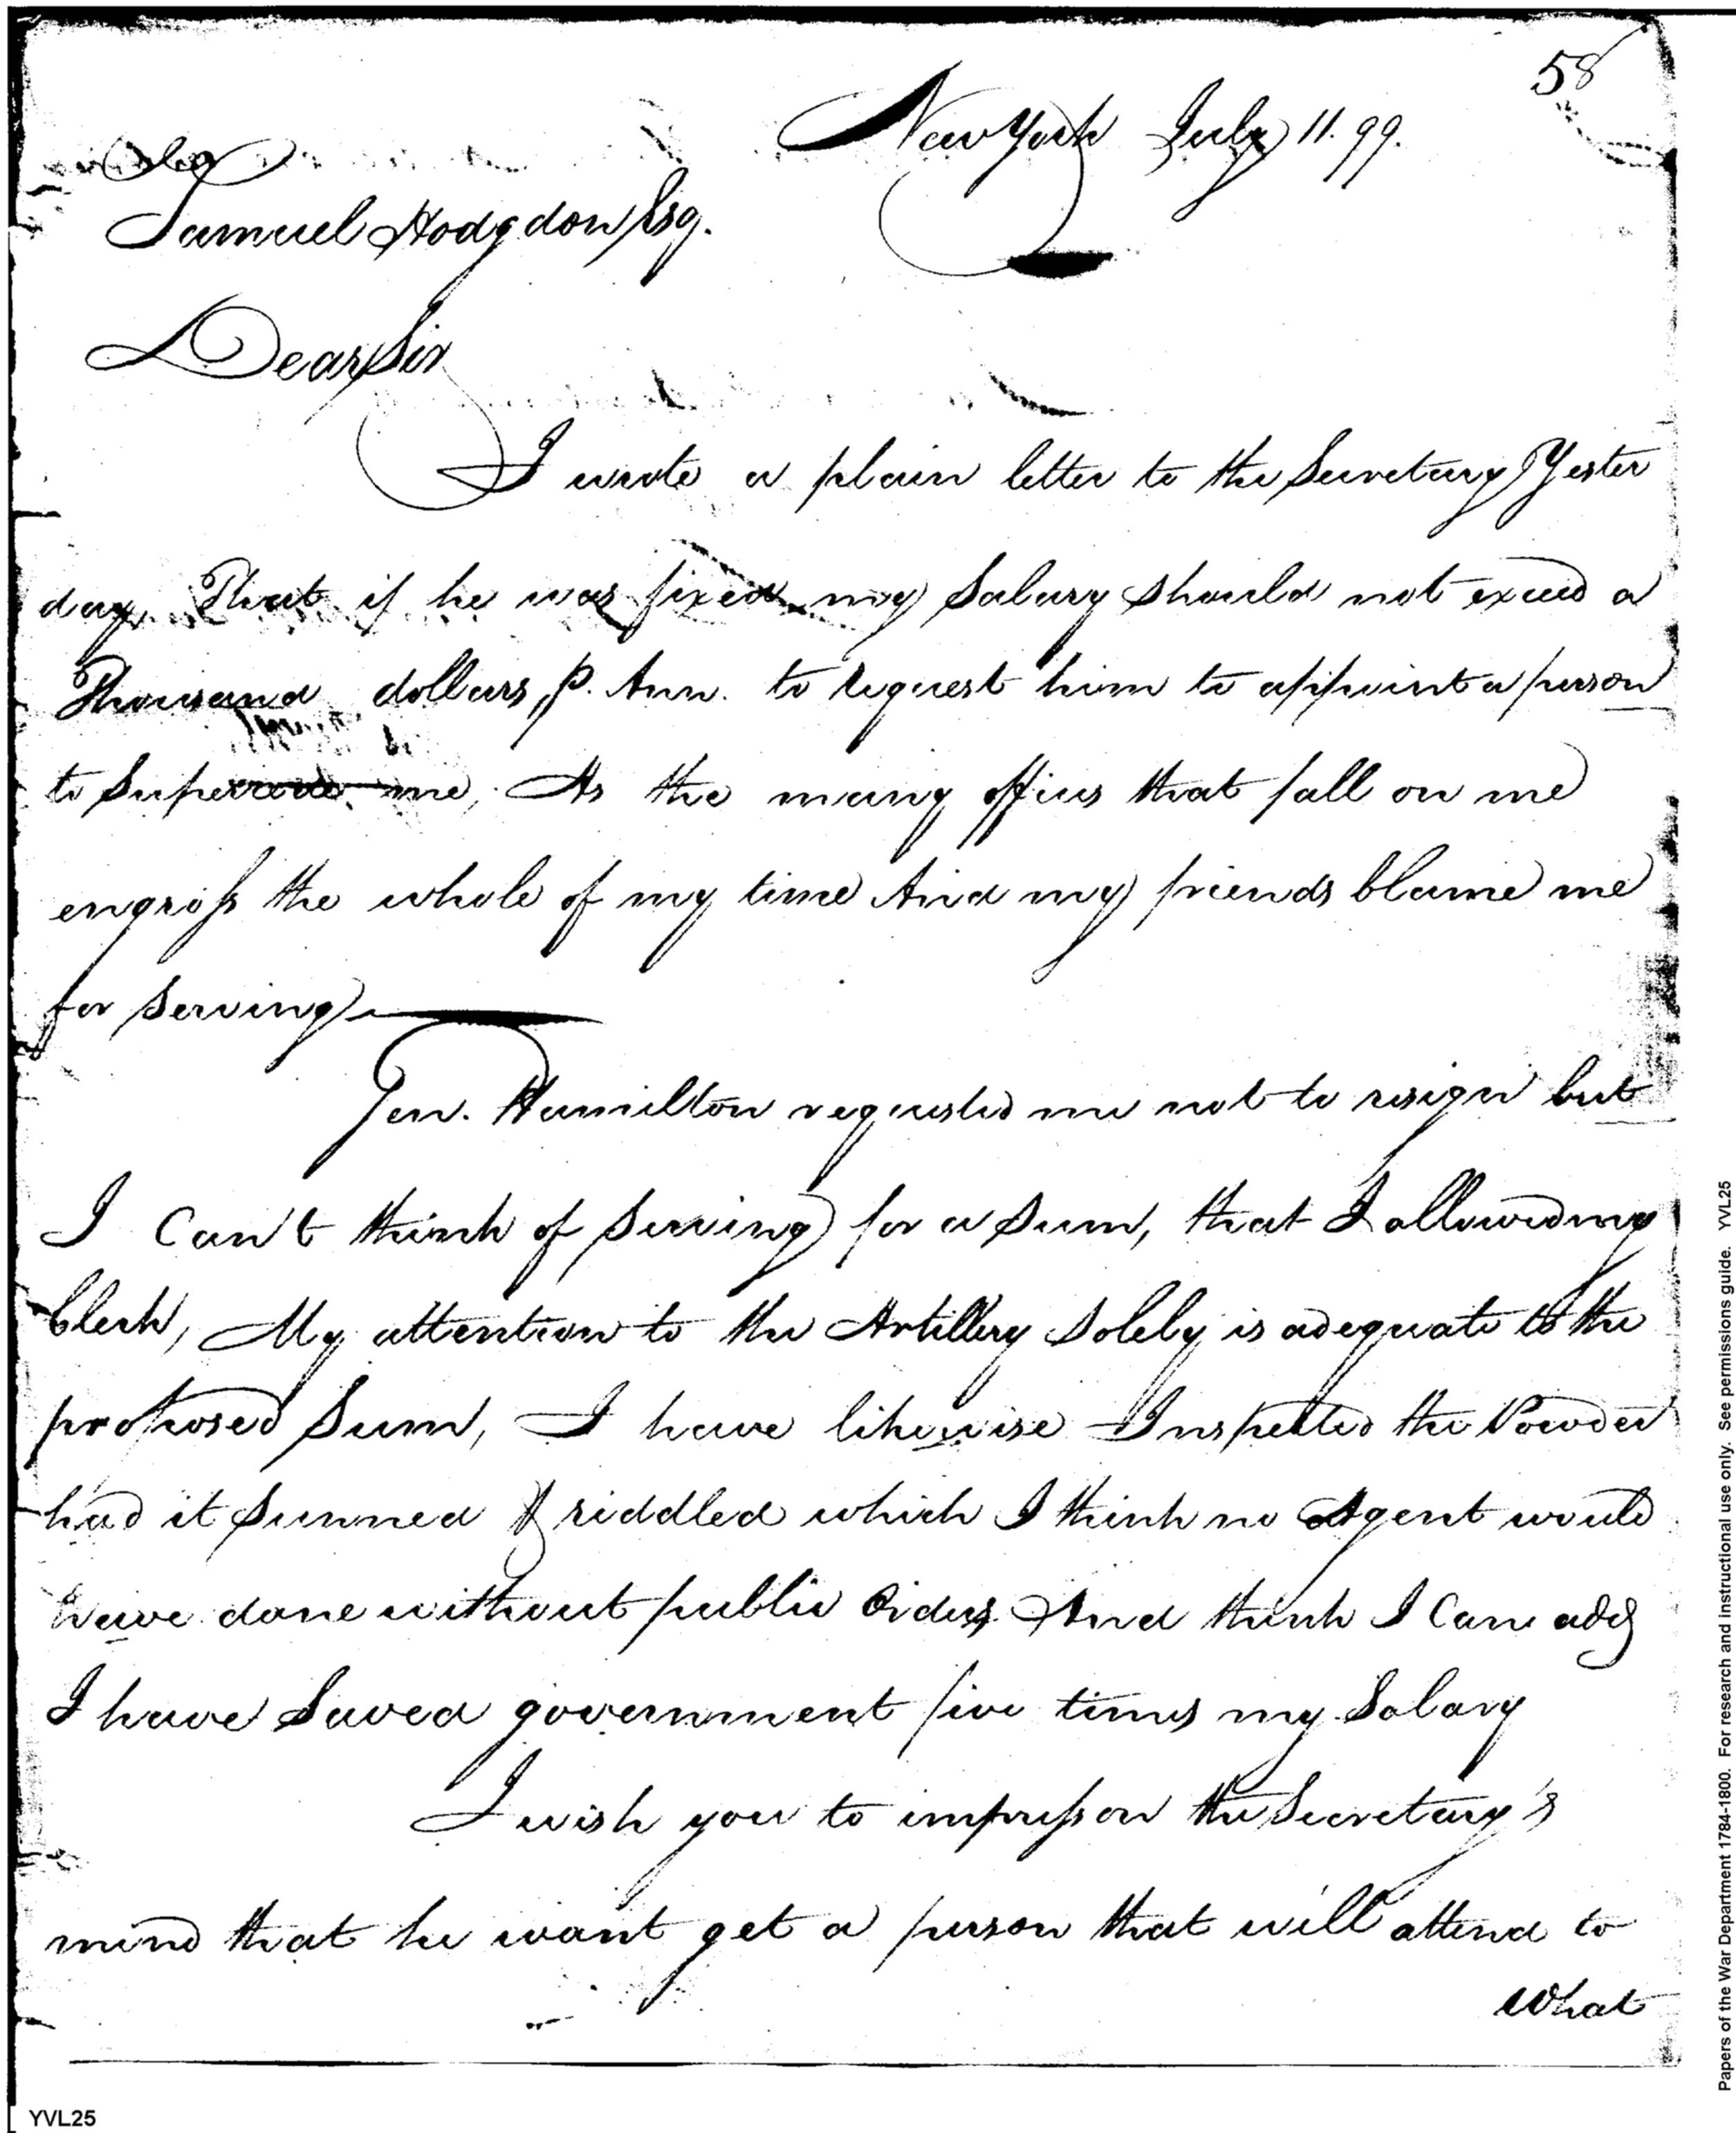 58
New York July 11. 99.
Samuel Hodgdon Esq.
Dear Sir
I wrote a plain letter to the Secretary Yester
day, That if he was fixed my Salary should not exceed a
Thousand dollars p. Ann. to request him to appoint a person
to Supercede me, As the many offices that fall on me
engross the whole of my time And my friends blame me
for Serving
Gen. Hamilton requested me not to resign but
I Can't think of Serving for a Sum, that I allowed my
Clerk, My attention to the Artillery Solely is adequate to the
proposed Sum, I have likewise Inspected the Powder
had it Sunned & riddled which I think no Agent would
have done without public Orders And think I Can add
I have Saved government five times my Salary
I wish you to impress on the Secretary's
mind that he wont get a person that will attend to
What
Papers of the War Department 1784-1800. For research and instructional use only. See permissions guide. YVL25
YVL25